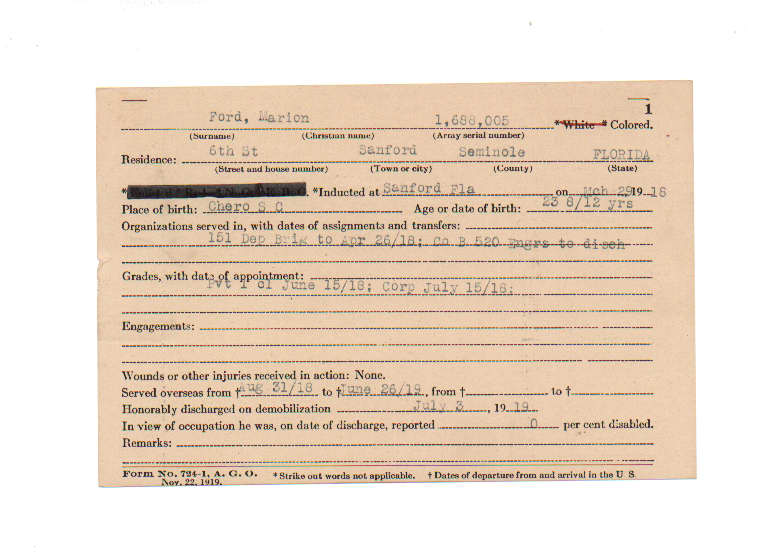 1
Ford, Marion 1,688,005 *White * Colored.
(Surname) (Christian name) (Army serial number)
Residence: 6th St Sanford Seminole FLORIDA
(Street and house number) (Town or city) (County) (State)
* *Inducted at Sanford Fla on Mch 29 19 18
Place of birth: Chero S C Age or date of birth: 23 8/12 yrs
Organizations served in, with dates of assignments and transfers:
151 Dep Brig to Apr 26/18; Co B 520 Engrs to disch
Grades, with date of appointment:
Pvt 1 cl June 15/18; Corp July 15/18;
Engagements:
Wounds or other injuries received in action: None.
Served overseas from † Aug 31/18 to † June 26/19, from † to †
Honorably discharged on demobilization July 3, 19 19
In view of occupation he was, on date of discharge, reported 0 per cent disabled.
Remarks:
Form No. 724-1, A. G. O. *Strike out words not applicable. † Dates of departure from and arrival in the U S.
Nov. 22, 1919.